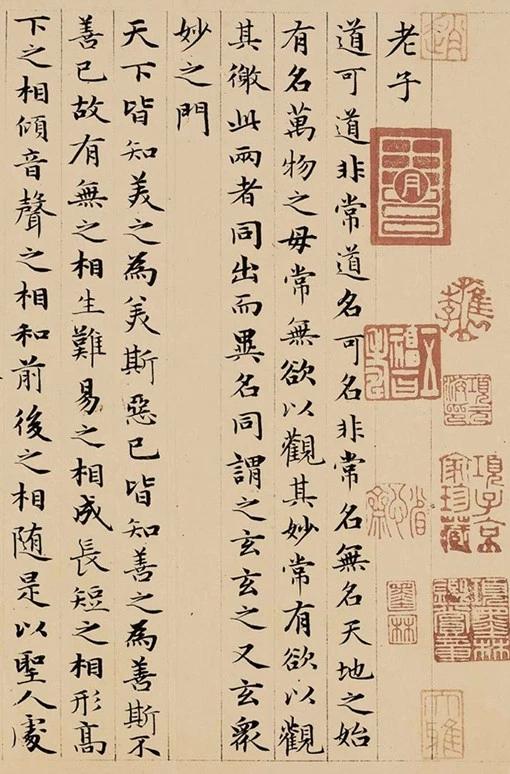 項子京家珍藏
項墨林鑑賞章
墨林
老子
道可道非常道名可名非常名無名天地之始
有名萬物之母常無欲以觀其妙常有欲以觀
其徼此兩者同出而異名同謂之玄玄之又玄衆
妙之門
天下皆知美之為美斯惡已皆知善之為善斯不
善已故有無之相生難易之相成長短之相形高
下之相傾音聲之相和前後之相随是以聖人處